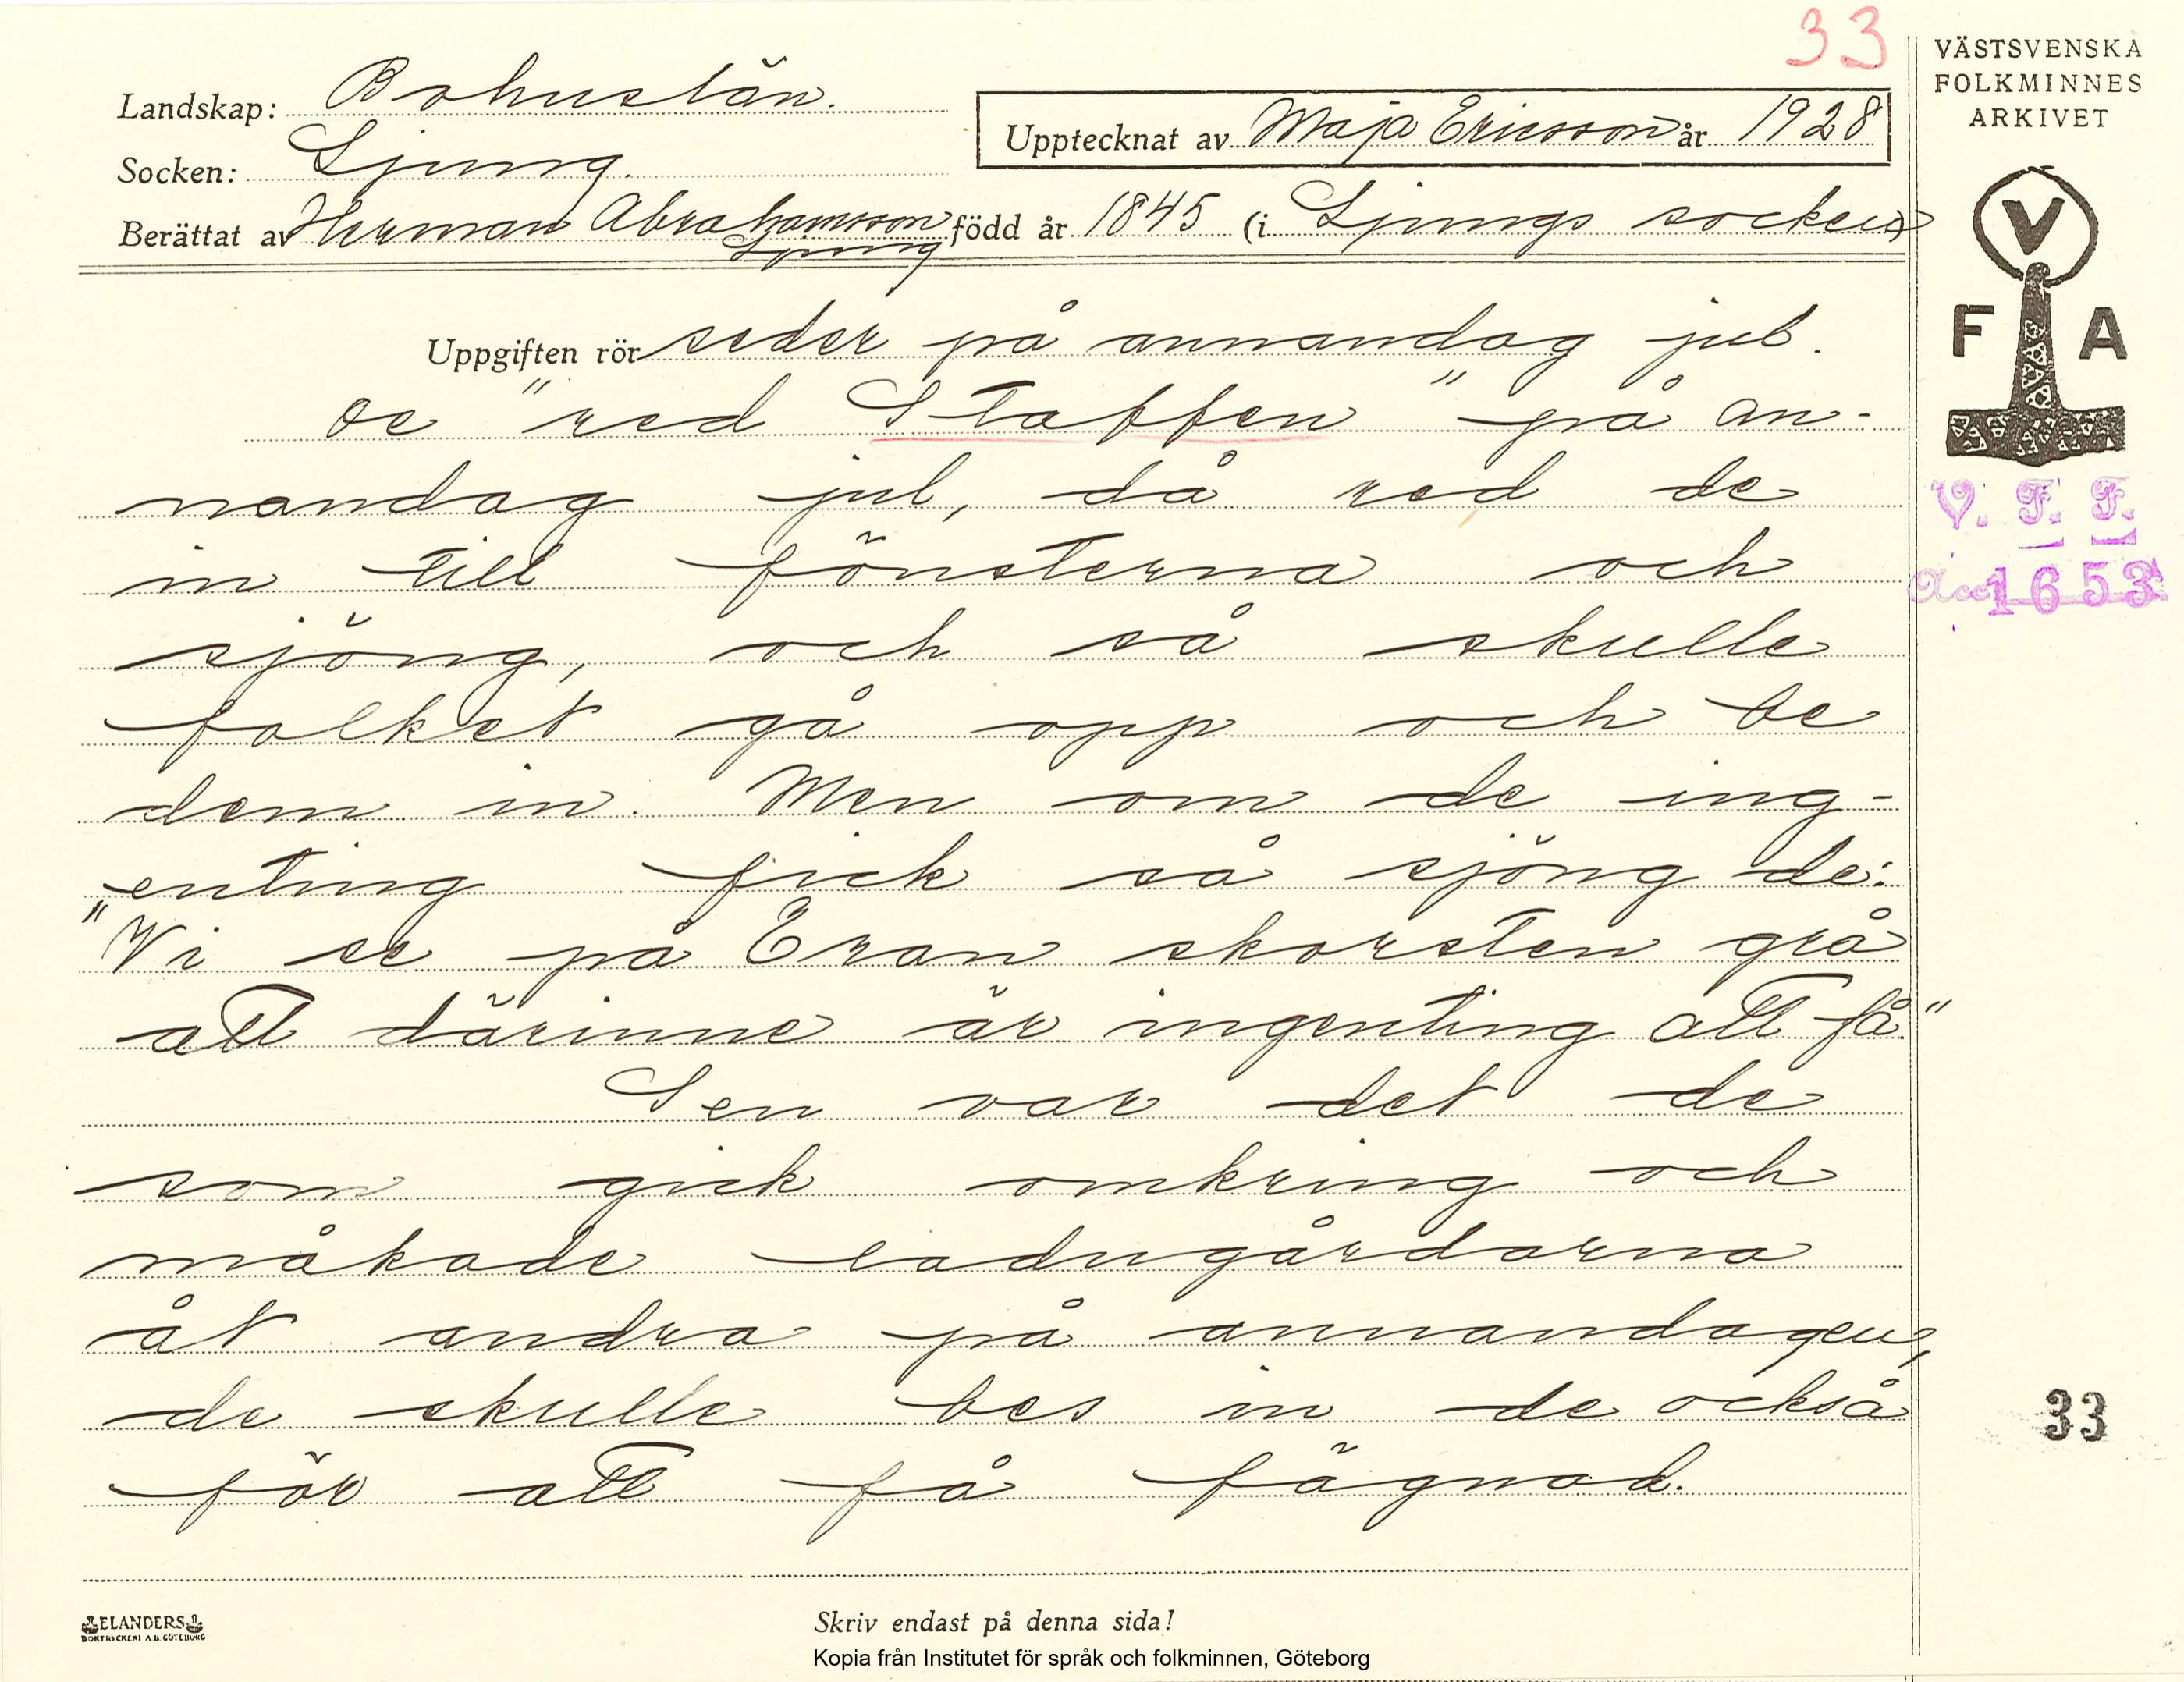 33
VÄSTSVENSKA
FOLKMINNES
ARKIVET
Landskap: Bohuslän.
Upptecknat av Maja Ericsson år 1928
Socken: Ljung.
Berättat av Herman Abrahamsson född år 1845 (i Ljungs socken)
Ljung
V
F A
Uppgiften rör seder på annandag jul.
De "red Staffen" på an-
nandag jul, då red de
in till fönsterna och
sjöng, och så skulle
folket gå opp och be
dem in. Men om de ing-
enting fick så sjöng de:
"Vi se på Eran skorsten grå
att därinne är ingenting att få."
Sen var det de
som gick omkring och
måkade ladugårdarna
åt andra på annandagen,
de skulle bes in de också
för att få fägnad.
V. F. F.
Acc 1653
33
ELANDERS
BOKTRYCKERI A.B. GÖTEBORG
Skriv endast på denna sida!
Kopia från Institutet för språk och folkminnen, Göteborg